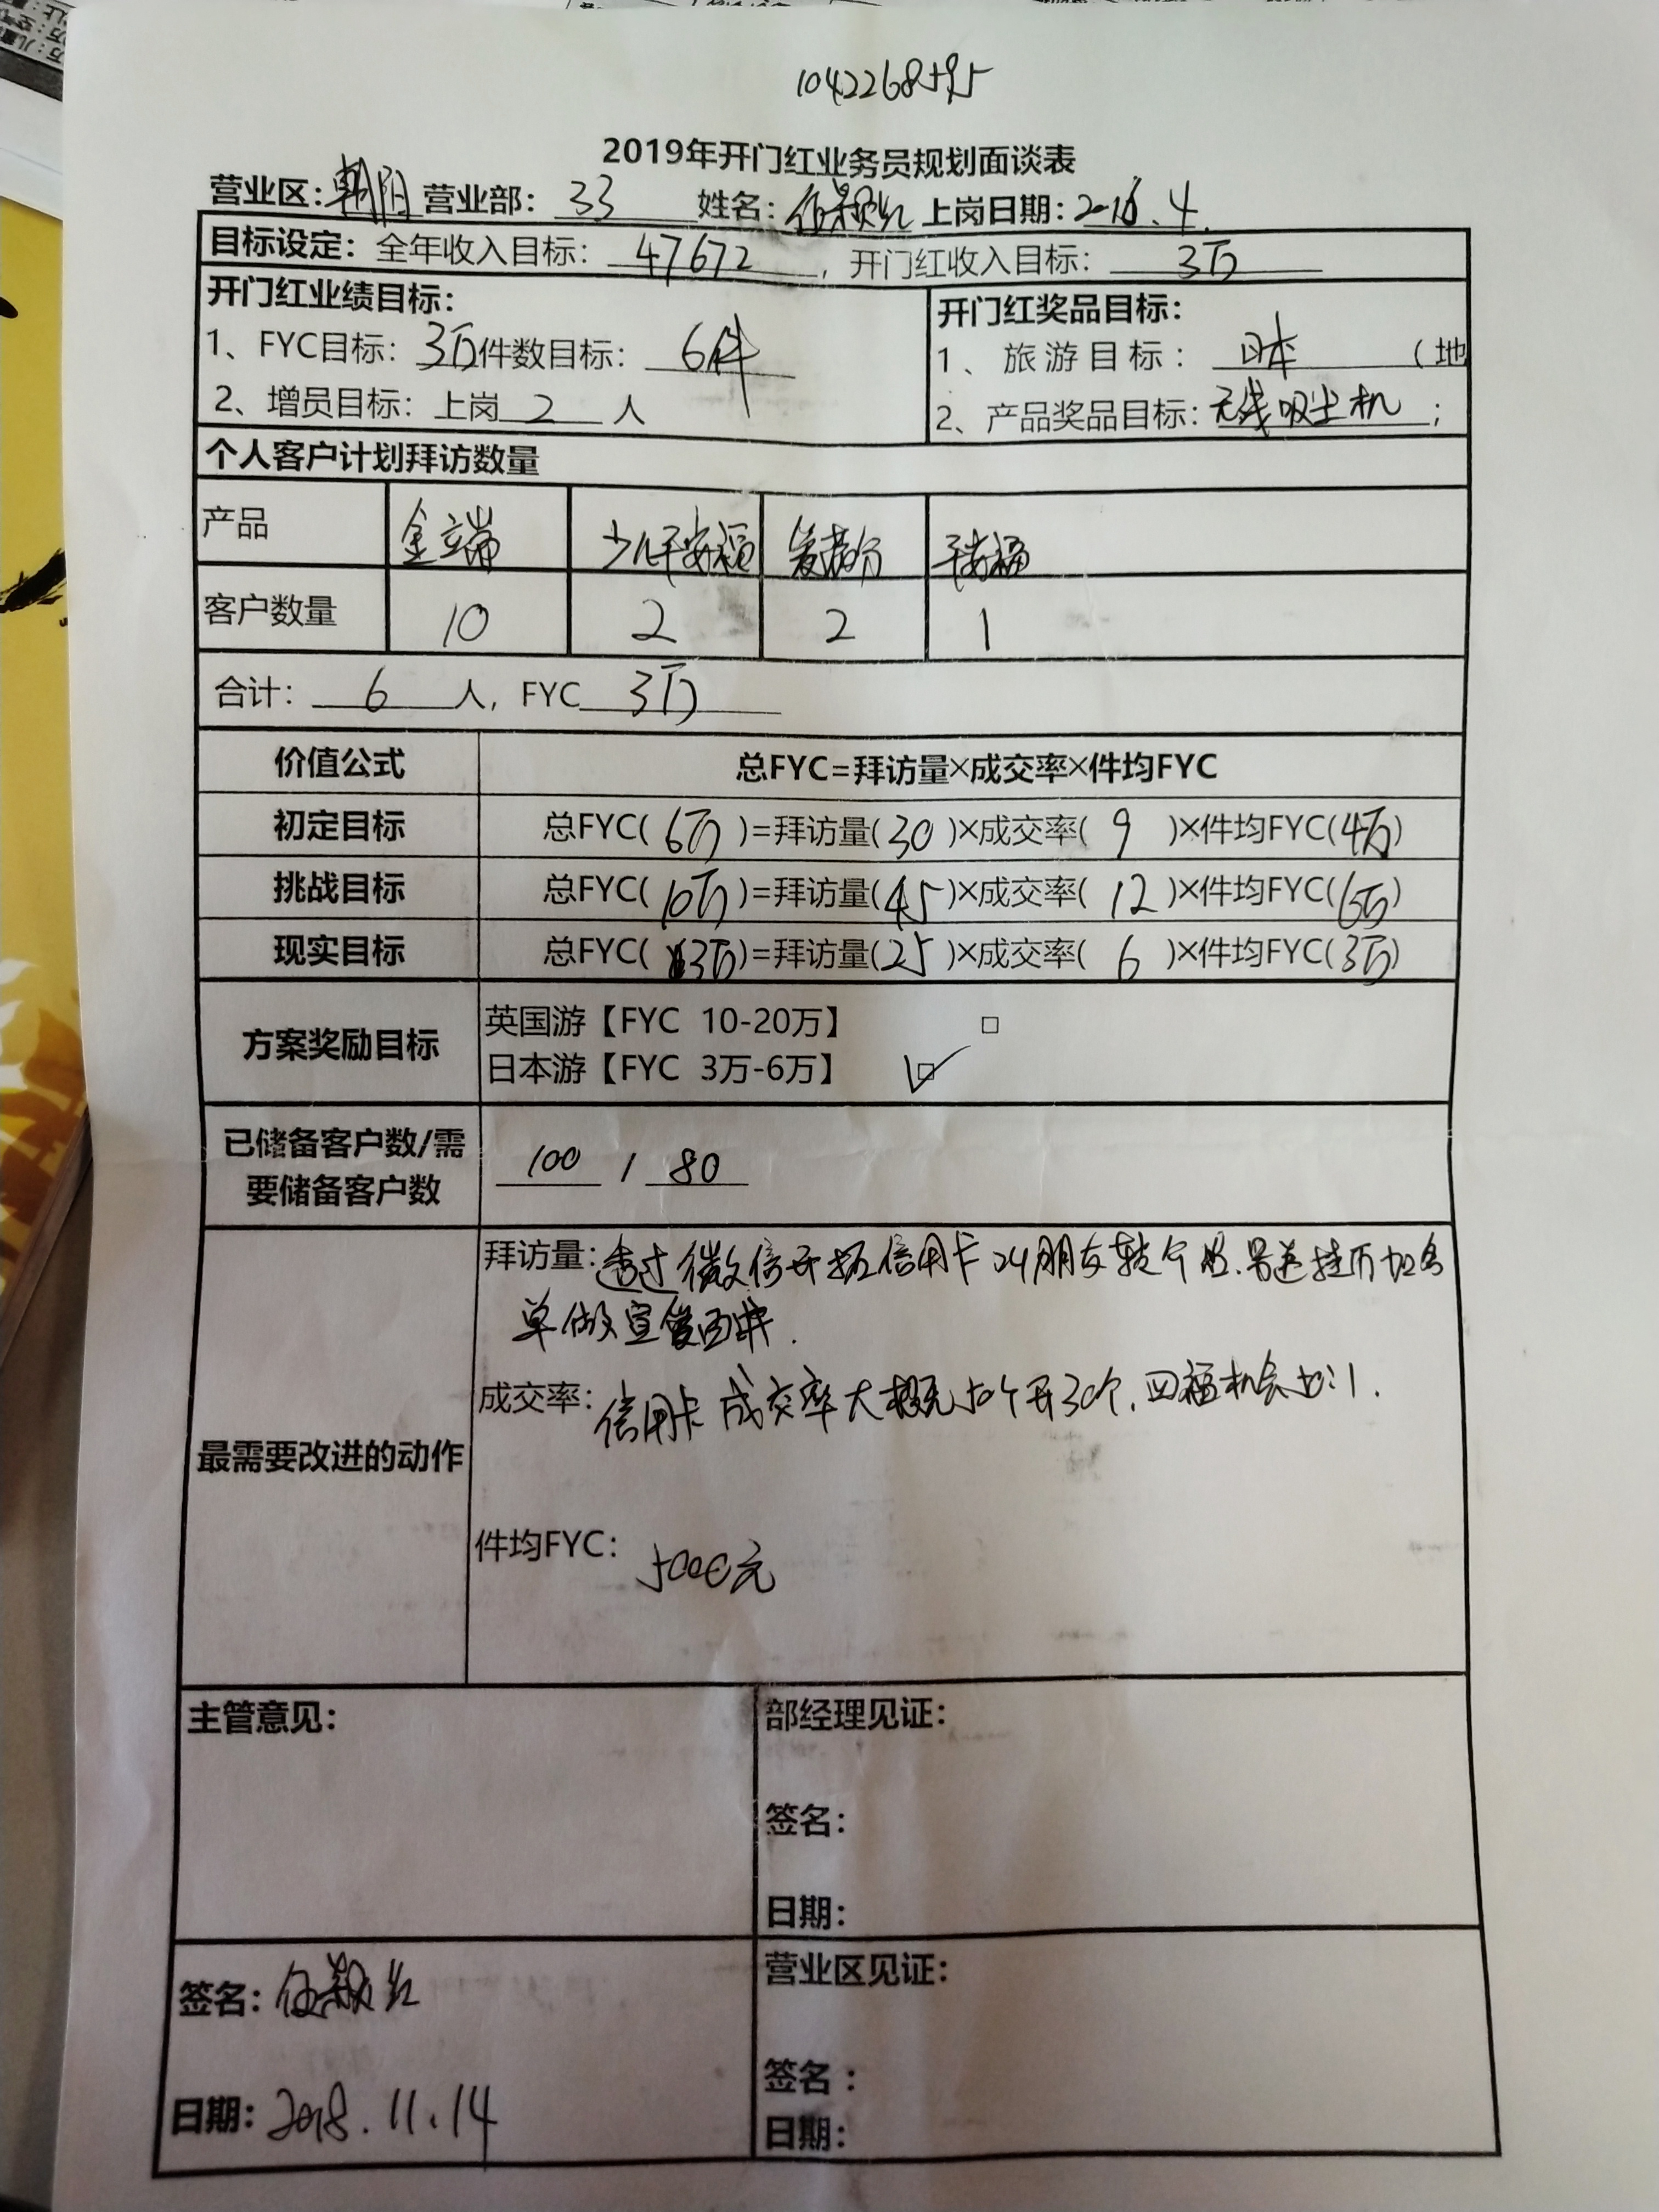 2019年开门红业务员规划面谈表
营业区：朝阳 营业部：33 姓名： 上岗日期：2016.4
目标设定：全年收入目标：47672，开门红收入目标：3万
开门红业绩目标：
1、FYC目标：3万件数目标：6件
2、增员目标：上岗2人
开门红奖品目标：
1、旅游目标：日本（地
2、产品奖品目标：无线吸尘机；
个人客户计划拜访数量
产品 金瑞 少儿平安福 爱满分 平安福
客户数量 10 2 2 1
合计：6人，FYC 3万
价值公式 总FYC=拜访量×成交率×件均FYC
初定目标 总FYC(6万)=拜访量(30)×成交率(9)×件均FYC(4万)
挑战目标 总FYC(10万)=拜访量(45)×成交率(12)×件均FYC(6万)
现实目标 总FYC(3万)=拜访量(25)×成交率(6)×件均FYC(3万)
方案奖励目标
英国游【FYC 10-20万】 □
日本游【FYC 3万-6万】 ☑
已储备客户数/需
要储备客户数
100 / 80
最需要改进的动作
拜访量：透过微信开拓信用卡 朋友转介绍
单做宣
成交率：信用卡成交率大概50个开30个，
件均FYC：5000元
主管意见：
部经理见证：
签名：
日期：
签名：
日期：2018.11.14
营业区见证：
签名：
日期：